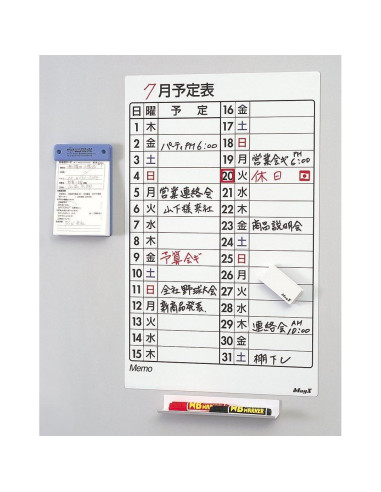 7月予定表
日 曜 予定
1 木
2 金 パーティPM6:00
3 土
4 日
5 月 営業連絡会
6 火 山下様来社
7 水
8 木
9 金 予算会ギ
10 土
11 日 会社野球大会
12 月 新商品発表
13 火
14 水
15 木
16 金
17 土
18 日
19 月 営業会ギ PM 6:00
20 火 休日
21 水
22 木
23 金 商品説明会
24 土
25 日
26 月
27 火
28 水
29 木 連絡会 AM 10:00
30 金
31 土 棚下し
Memo
MagX
MagX
MARKER
MARKER